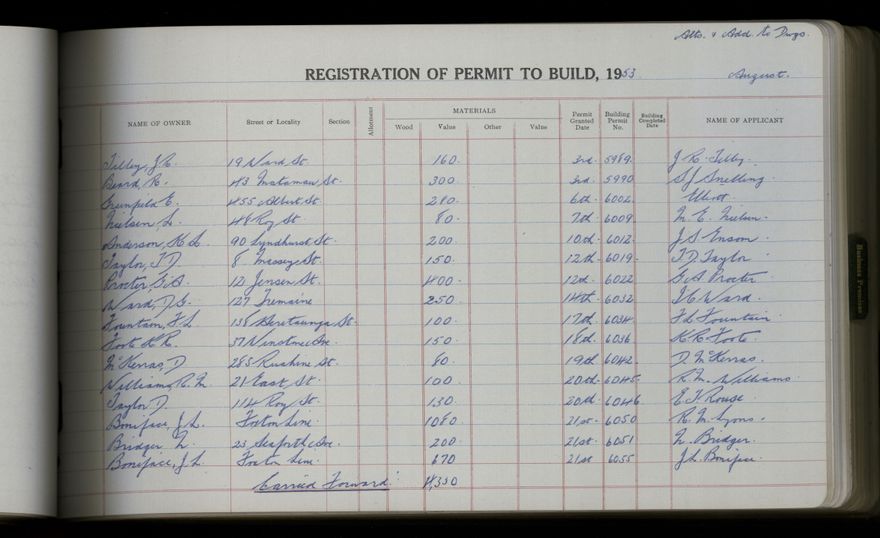 Alts. & Add. to Dwgs.
REGISTRATION OF PERMIT TO BUILD, 1953
August.
NAME OF OWNER Street or Locality Section Allotment MATERIALS Wood Value Other Value Permit Granted Date Building Permit No. Building Completed Date NAME OF APPLICANT
Tilley, J.R. 19 Ward St. 160. 3rd. 5989. J.R. Tilley.
Beard, R. 43 Matamau St. 300. 3rd. 5990 S.J. Snelling.
Greenfield E. 455 Albert St. 280. 6th. 6002. Elliott.
Nielsen, 48 Roy St. 80. 7th 6009. Nielsen.
Anderson, 90 Lyndhurst St. 200. 10th. 6012. J.S. Enson.
Taylor, T.D. 8 Massey St. 150. 12th. 6019. T.D. Taylor
Procter, G.A. 12 Jensen St. 400. 12th. 6022 G.A. Procter
Ward, D.G. 127 Tremaine 250. 14th. 6032 Ward.
Fountain, F.L. 138 Heretaunga St. 100. 17th. 6034. F.L. Fountain.
Foote K.R. 37 Ave. 150. 18th. 6036. K.R. Foote.
McKerras, D. 285 Ruahine St. 80. 19th. 6042. D. McKerras.
Williams, R.M. 21 East St. 100. 20th. 6045. R.M. Williams.
Taylor D. 114 Roy St. 130. 20th. 6046 E.F. Rouse.
Boniface, J.L. Foxton Line. 1080. 21st. 6050 R.M. Lyons.
Bridger 23 Seaforth Ave. 200. 21st. 6051 Bridger.
Boniface, J.L. Foxton Line. 670 21st 6055 J.L. Boniface.
Carried Forward: 4,350
Business Premises